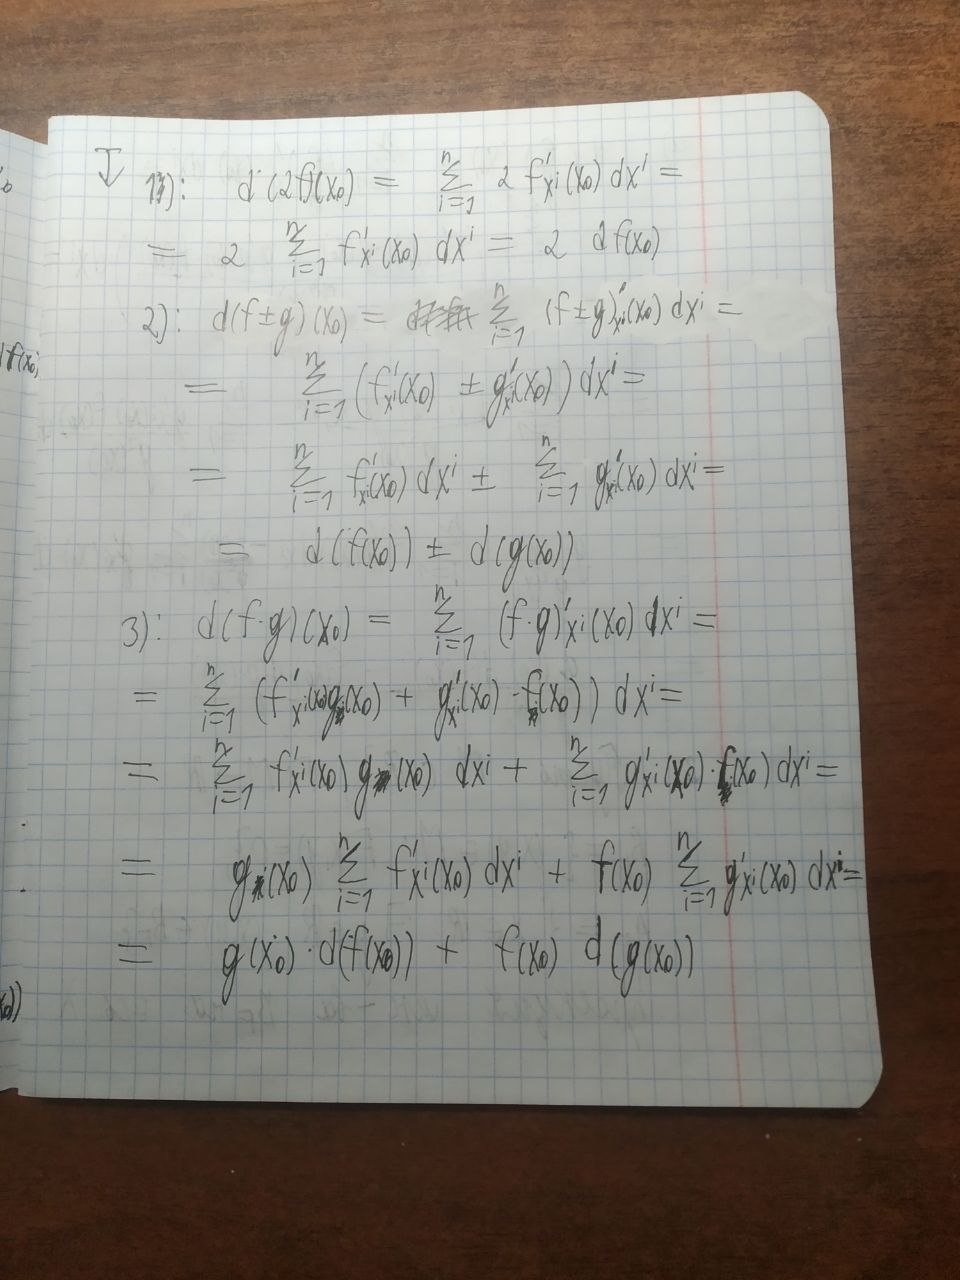 1): d(2f)(x₀) = Σ_{i=1}^{n} 2 f'_{xⁱ}(x₀) dxⁱ =
= 2 Σ_{i=1}^{n} f'_{xⁱ}(x₀) dxⁱ = 2 df(x₀)
2): d(f±g)(x₀) = Σ_{i=1}^{n} (f±g)'_{xⁱ}(x₀) dxⁱ =
= Σ_{i=1}^{n} (f'_{xⁱ}(x₀) ± g'_{xⁱ}(x₀)) dxⁱ =
= Σ_{i=1}^{n} f'_{xⁱ}(x₀) dxⁱ ± Σ_{i=1}^{n} g'_{xⁱ}(x₀) dxⁱ =
= d(f(x₀)) ± d(g(x₀))
3): d(f·g)(x₀) = Σ_{i=1}^{n} (f·g)'_{xⁱ}(x₀) dxⁱ =
= Σ_{i=1}^{n} (f'_{xⁱ}(x₀)g(x₀) + g'_{xⁱ}(x₀)·f(x₀)) dxⁱ =
= Σ_{i=1}^{n} f'_{xⁱ}(x₀) g(x₀) dxⁱ + Σ_{i=1}^{n} g'_{xⁱ}(x₀)·f(x₀) dxⁱ =
= g(x₀) Σ_{i=1}^{n} f'_{xⁱ}(x₀) dxⁱ + f(x₀) Σ_{i=1}^{n} g'_{xⁱ}(x₀) dxⁱ =
= g(x₀)·d(f(x₀)) + f(x₀) d(g(x₀))